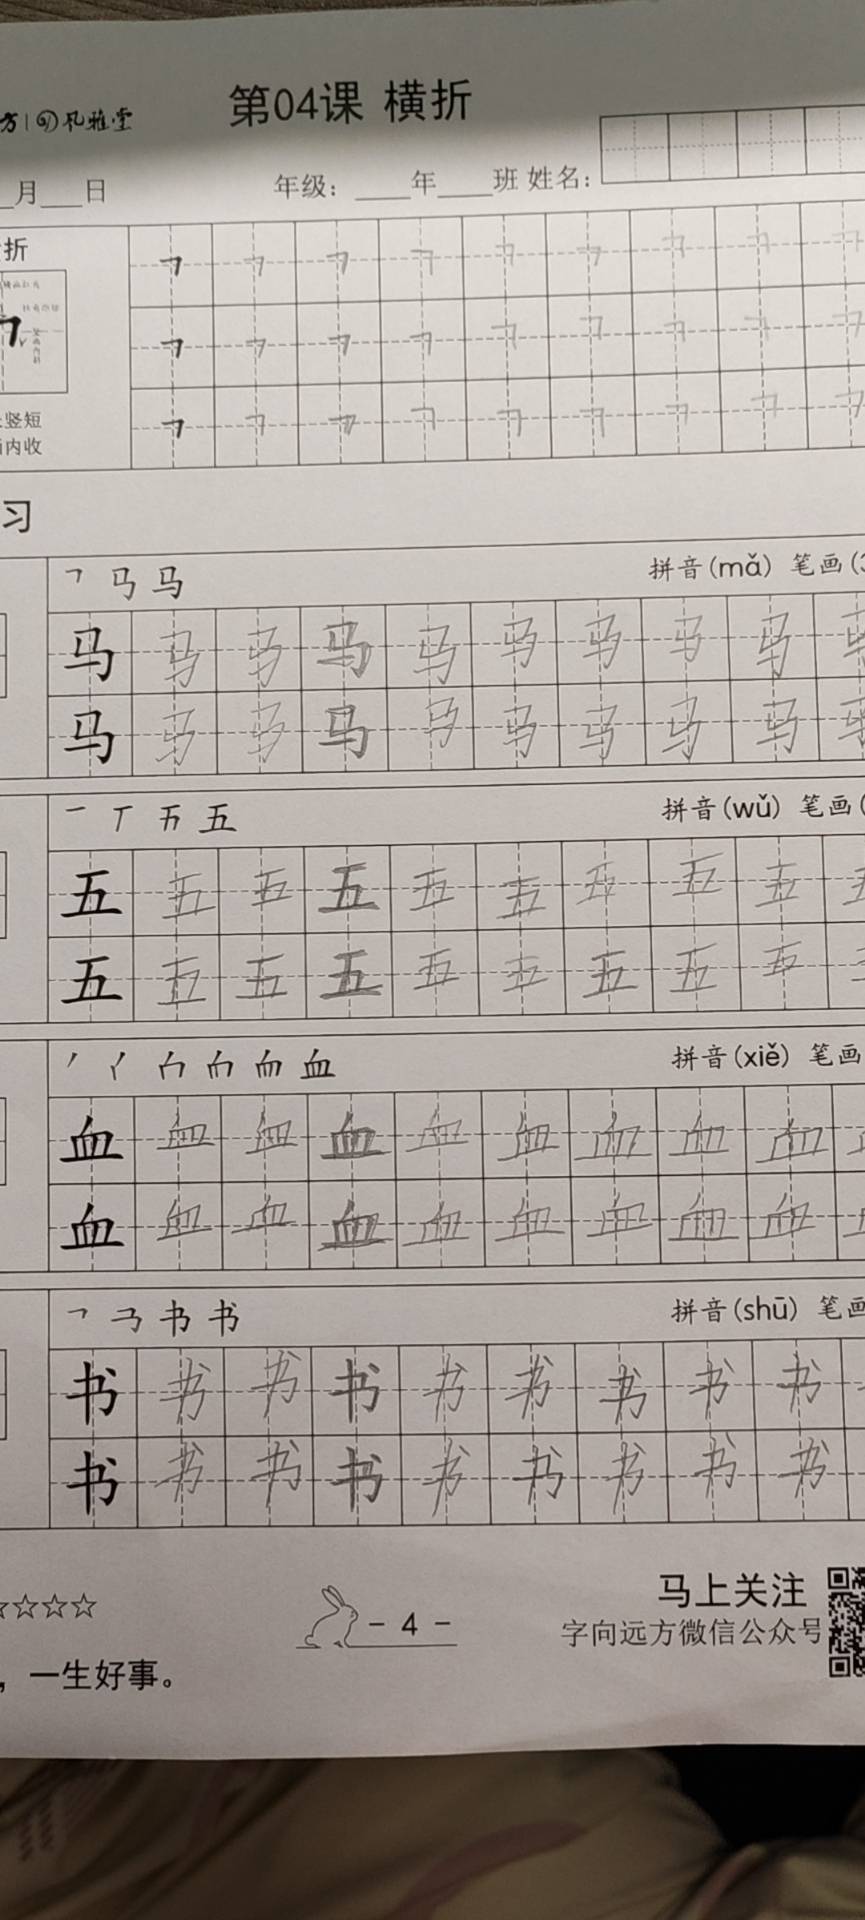 第04课 横折
月 日 年级： 年 班 姓名：
折
竖短
内收
习
㇕ 马 马 拼音(mǎ) 笔画(
马 马 马 马 马 马 马 马 马
马 马 马 马 马 马 马 马 马
一 丅 五 五 拼音(wǔ) 笔画(
五 五 五 五 五 五 五 五 五
五 五 五 五 五 五 五 五 五
血 拼音(xiě) 笔画
血 血 血 血 血 血 血 血 血
血 血 血 血 血 血 血 血 血
㇕ 书 书 拼音(shū) 笔画
书 书 书 书 书 书 书 书 书
书 书 书 书 书 书 书 书 书
☆☆☆☆
- 4 -
马上关注
字向远方微信公众号
，一生好事。